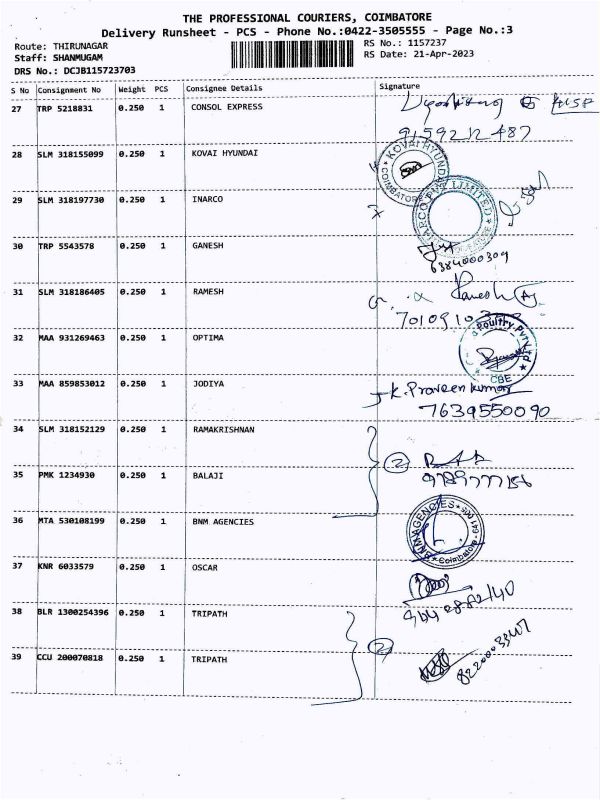 THE PROFESSIONAL COURIERS, COIMBATORE
Delivery Runsheet - PCS - Phone No.:0422-3505555 - Page No.:3
Route: THIRUNAGAR
RS No.: 1157237
Staff: SHANMUGAM
RS Date: 21-Apr-2023
DRS No.: DCJB115723703
S No Consignment No Weight PCS Consignee Details Signature
27 TRP 5218831 0.250 1 CONSOL EXPRESS
9159212487
28 SLM 318155099 0.250 1 KOVAI HYUNDAI
KOVAI HYUNDAI
COIMBATORE
29 SLM 318197730 0.250 1 INARCO
LIMITED
30 TRP 5543578 0.250 1 GANESH
6384000309
31 SLM 318186405 0.250 1 RAMESH
Ramesh
32 MAA 931269463 0.250 1 OPTIMA
Poultry Pvt Ltd
CBE
33 MAA 859853012 0.250 1 JODIYA
J.K. Praveen kumar
7639550090
34 SLM 318152129 0.250 1 RAMAKRISHNAN
2
35 PMK 1234930 0.250 1 BALAJI
36 MTA 530108199 0.250 1 BNM AGENCIES
BNM AGENCIES
Coimbatore
37 KNR 6033579 0.250 1 OSCAR
38 BLR 1300254396 0.250 1 TRIPATH
2
39 CCU 200070818 0.250 1 TRIPATH
8220003307